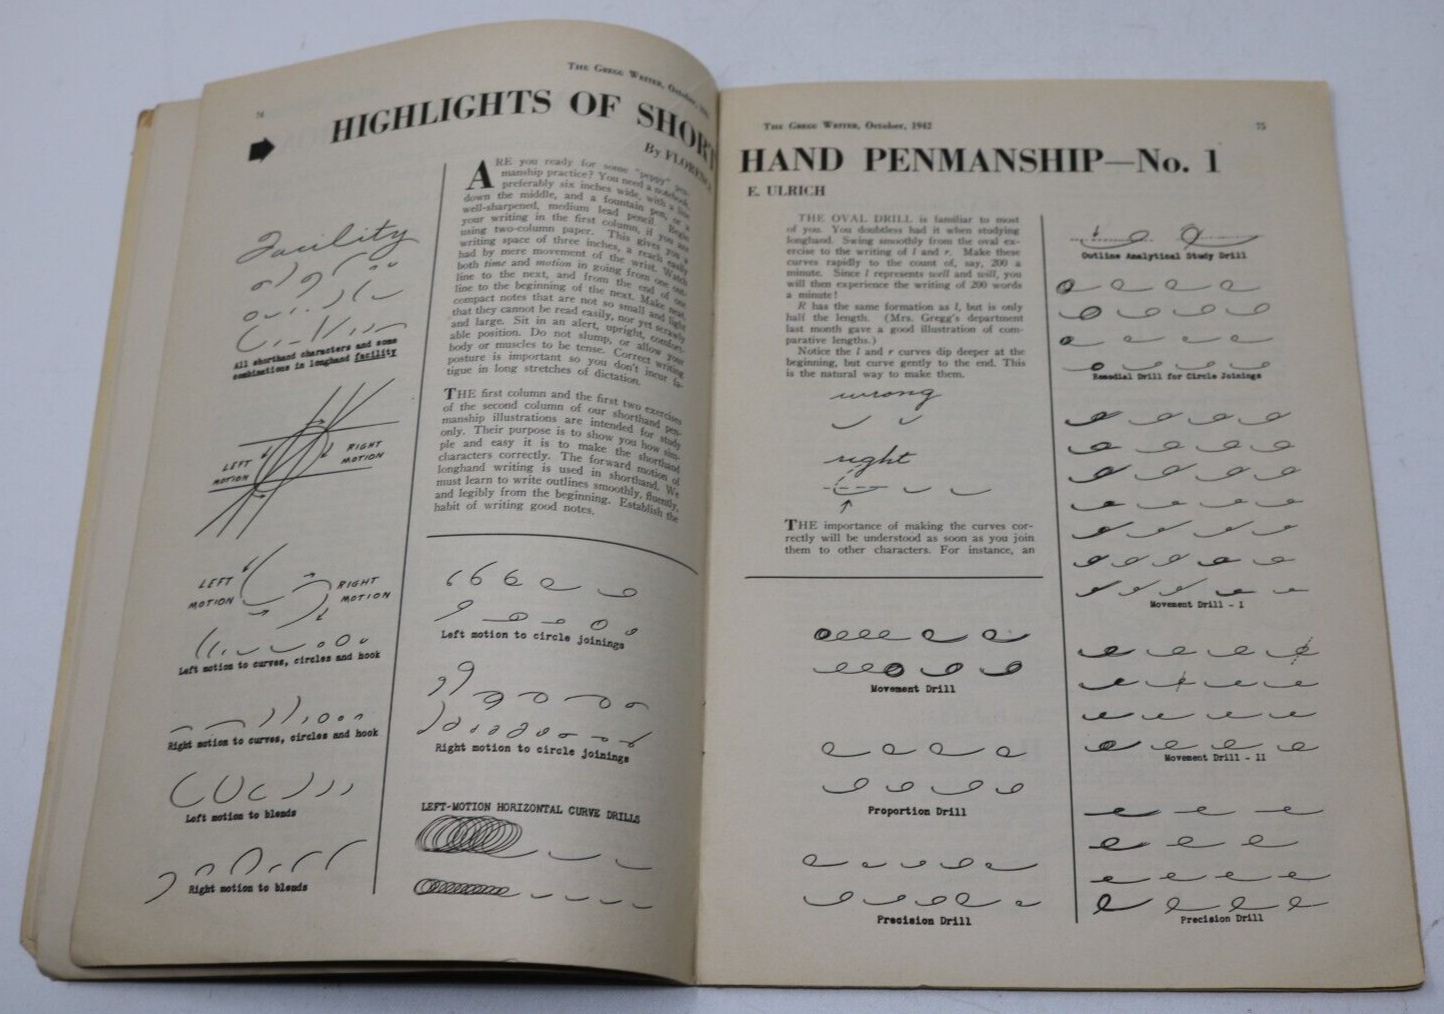 74
THE GREGG WRITER, October,
HIGHLIGHTS OF SHORT
By FLORENCE
Facility
All shorthand characters and some
combinations in longhand facility
LEFT
MOTION
RIGHT
MOTION
LEFT
MOTION
RIGHT
MOTION
Left motion to curves, circles and hook
Right motion to curves, circles and hook
Left motion to blends
Right motion to blends
ARE you ready for some "peppy" pen-
manship practice? You need a notebook,
preferably six inches wide, with a line
down the middle, and a fountain pen, or a
well-sharpened, medium lead pencil. Begin
your writing in the first column, if you are
using two-column paper. This gives you a
writing space of three inches, a reach easily
had by mere movement of the wrist. Watch
both time and motion in going from one out-
line to the next, and from the end of one
line to the beginning of the next. Make neat,
compact notes that are not so small and light
that they cannot be read easily, nor yet scrawly
and large. Sit in an alert, upright, comfort-
able position. Do not slump, or allow your
body or muscles to be tense. Correct writing
posture is important so you don't incur fa-
tigue in long stretches of dictation.
THE first column and the first two exercises
of the second column of our shorthand pen-
manship illustrations are intended for study
only. Their purpose is to show you how sim-
ple and easy it is to make the shorthand
characters correctly. The forward motion of
longhand writing is used in shorthand. We
must learn to write outlines smoothly, fluently,
and legibly from the beginning. Establish the
habit of writing good notes.
Left motion to circle joinings
Right motion to circle joinings
LEFT-MOTION HORIZONTAL CURVE DRILLS
THE GREGG WRITER, October, 1942
75
HAND PENMANSHIP—No. 1
E. ULRICH
THE OVAL DRILL is familiar to most
of you. You doubtless had it when studying
longhand. Swing smoothly from the oval ex-
ercise to the writing of l and r. Make these
curves rapidly to the count of, say, 200 a
minute. Since l represents well and will, you
will then experience the writing of 200 words
a minute!
R has the same formation as l, but is only
half the length. (Mrs. Gregg's department
last month gave a good illustration of com-
parative lengths.)
Notice the l and r curves dip deeper at the
beginning, but curve gently to the end. This
is the natural way to make them.
wrong
right
THE importance of making the curves cor-
rectly will be understood as soon as you join
them to other characters. For instance, an
Movement Drill
Proportion Drill
Precision Drill
Outline Analytical Study Drill
Remedial Drill for Circle Joinings
Movement Drill - I
Movement Drill - II
Precision Drill